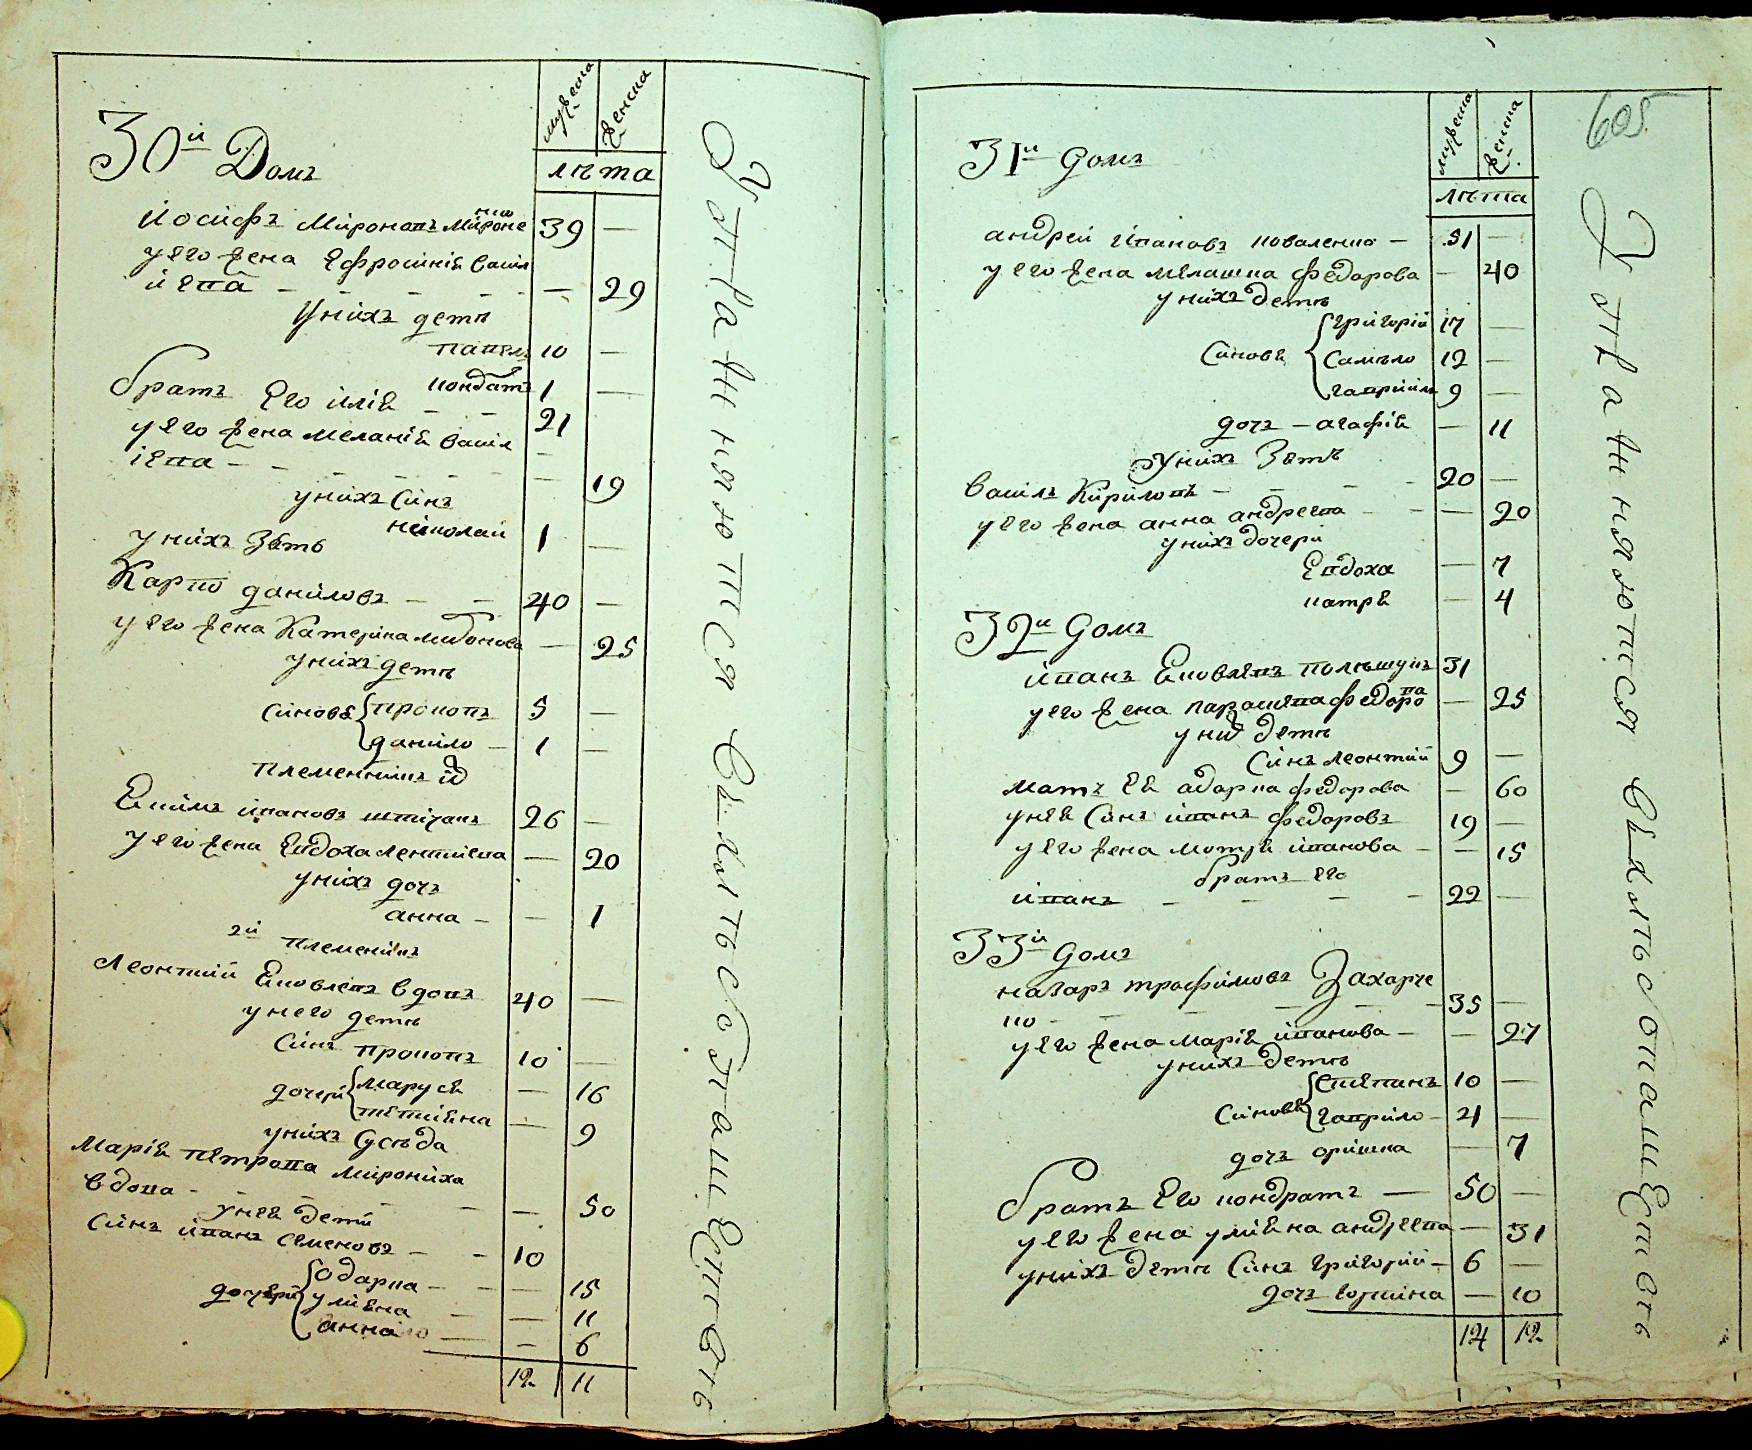 мужеска
женска
лѣта
30й Домъ
Йосифъ Миронопъ Мироне
нко
39 —
у его жена Ефросиніѣ васил
йепа — 29
Унихъ дети
папелъ 10 —
кондатъ 1 —
братъ Его иліѣ — — 21
у его жена меланіѣ васил
іепа — — — 19
унихъ синъ
николай 1 —
унихъ Зѣть
Карпо даниловъ — — 40 —
у его жена Катерина мидонова — 25
унихъ дети
синовѣ
прокопъ 5 —
данило — 1 —
племенникъ й
Екимъ ипановъ штиханъ 26 —
у его жена Епдоха лентиепа — 20
унихъ дочъ
анна — — 1
2й племеникъ
Леонтий Яковлепъ вдопъ 40 —
унего дети
синъ прокопъ 10 —
дочери
марусѣ — 16
тетиѣна — 9
унихъ сусѣда
Маріѣ петропа мирониха
вдопа — — — 50
унеѣ дети
синъ ипанъ семеновъ — — 10
дочери
одарка — — 15
улиѣна — — 11
анна — 6
12 11
605
мужеска
женска
лѣта
31й домъ
андрей ипановъ коваленко — 51 —
у его жена мелашка федорова — 40
унихъ дети
синовѣ
григорій 17 —
самъло 12 —
гаприйлъ 9 —
дочъ — агафіѣ — 11
Унихъ Зѣть
василъ Кирилопъ — — — 20 —
у его жена анна андреепа — — 20
унихъ дочери
Епдоха — 7
патрѣ — 4
32й домъ
ипанъ Яковлепъ полѣшукъ 31
у его жена параскепа федоро
па
— 25
уних дети
синъ леонтий 9 —
мать Еѣ адорка федорова — 60
унеѣ синъ ипанъ федоровъ 19 —
у его жена мотрѣ ипанова — — 15
братъ его
ипанъ — — — — 22 —
33й домъ
назаръ трофимовъ Захарче
ко — — — — 35 —
у его жена маріѣ ипанова — — 27
унихъ дети
синовѣ
степанъ 10 —
гаприло — 21 —
дочъ оришка — 7
братъ Его кондратъ — 50 —
у его жена улиѣна андреепа — 31
унихъ дети синъ григорий — 6 —
дочъ горпина — 10
14 12